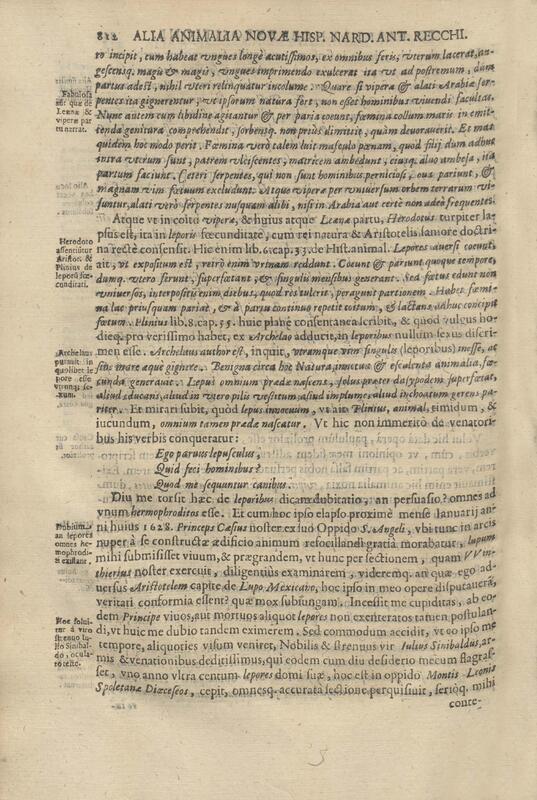 812 ALIA ANIMALIA NOVÆ HISP. NARD. ANT. RECCHI.
ro incipit, cum habeat vngues longè acutissimos, ex omnibus feris, vterum lacerat, au-
gescensq. magis & magis, vngues imprimendo exulcerat ita vt ad postremum, dum
partus adest, nihil vteri relinquatur incolume. Quare si vipera & alati Arabiæ ser-
pentes ita gignerentur, vt ipsorum natura fert, non esset hominibus viuendi facultas.
Nunc autem cum libidine agitantur & per paria coeunt, fœmina collum maris in emit-
tenda genitura comprehendit, sorbensq. non priùs dimittit, quàm deuorauerit. Et mas
quidem hoc modo perit. Fœmina verò talem luit masculo pœnam, quod filij dum adhuc
intra vterum sunt, patrem vlciscentes, matricem ambedunt, eiusq. aluo ambesa, ita
partum faciunt. Ceteri serpentes, qui non sunt hominibus perniciosi, oua pariunt, &
magnam vim fœtuum excludunt. Atque viperæ per vniuersum orbem terrarum vi-
suntur, alati verò serpentes nusquam alibi, nisi in Arabia aut certè non adeò frequentes.
Fabulosa
est quæ de
Leænæ &
viperæ par
tu narrat.
Atque vt in coitu viperæ, & huius atque Leænæ partu, Herodotus turpiter la-
psus est, ita in leporis fœcunditate, cum rei natura & Aristotelis saniore doctri-
na rectè consensit. Hic enim lib. 6. cap. 33. de Hist. animal. Lepores auersi coeunt,
ait, vt expositum est, retrò enim vrinam reddunt. Coeunt & pariunt quoque tempore,
dumq. vtero ferunt, superfœtant, & singulis mensibus generant. Sed fœtus edunt non
vniuersos, interpositis enim diebus, quod res tulerit, peragunt partionem. Habet fœmi-
na lac priusquam pariat, & à partu continuo repetit coitum, & lactans adhuc concipit
fœtum. Plinius lib. 8. cap. 55. huic planè consentanea scribit, & quod vulgus ho-
dieq. pro verissimo habet, ex Archelao adducit, in leporibus nullum sexus discri-
men esse. Archelaus author est, inquit, vtramque vim singulis (leporibus) inesse, ac
sine mare æquè gignere. Benigna circa hoc Natura, innocua & esculenta animalia, fœ-
cunda generauit. Lepus omnium prædæ nascens, solus præter dasypodem superfœtat,
aliud educans, aliud in vtero pilis vestitum, aliud implume, aliud inchoatum gerens pa-
riter. Et mirari subit, quòd lepus innocuum, vt ait Plinius, animal, timidum, &
iucundum, omnium tamen prædæ nascatur. Vt hic non immeritò de venatori-
bus his verbis conqueratur:
Herodoto
assentiũtur
Aristot. &
Plinius de
leporũ fœ-
cunditate.
Archelaus
putauit in
quolibet le
pore esse
vtrumq; se-
xum.
Ego paruus lepusculus,
Quid feci hominibus?
Quid me sequuntur canibus?
Diu me torsit hæc de leporibus dicam dubitatio, an persuasio? omnes ad
vnum hermophroditos esse. Et cum hoc ipso elapso proximè mense Ianuarij an-
ni huius 1628. Princeps Cæsius noster ex suo Oppido S. Angeli, vbi tunc in arcis
nuper à se constructæ ædificio animum refocillandi gratia morabatur, lupum
mihi submisisset viuum, & prægrandem, vt hunc per sectionem, quam VVin-
thierius noster exercuit, diligentiùs examinarem, videremq. an quæ ego ad-
uersus Aristotelem capite de Lupo Mexicano, hoc ipso in meo opere disputauerã,
veritati conformia essent? quæ mox subsungam. Incessit me cupiditas, ab eo-
dem Principe viuos, aut mortuos aliquot lepores non exenteratos tantùm postulan-
di, vt huic me dubio tandem eximerem. Sed commodum accidit, vt eo ipso me
tempore, aliquoties visum veniret, Nobilis & Strenuus vir Iulius Sinibaldus, ar-
mis & venationibus deditissimus, qui eodem cum diu desiderio mecum flagras-
set, vno anno vltra centum lepores domi suæ, hoc est in oppido Montis Leonis
Spoletanæ Diœceseos, cepit, omnesq. accurata sectione perquisiuit, seriòq. mihi
an lepores
omnes he-
mophrodi-
ti existant.
Hoc solui-
tur à viro
strenuo Iu-
lio Sinibal-
do, ocula-
to teste.
conte-